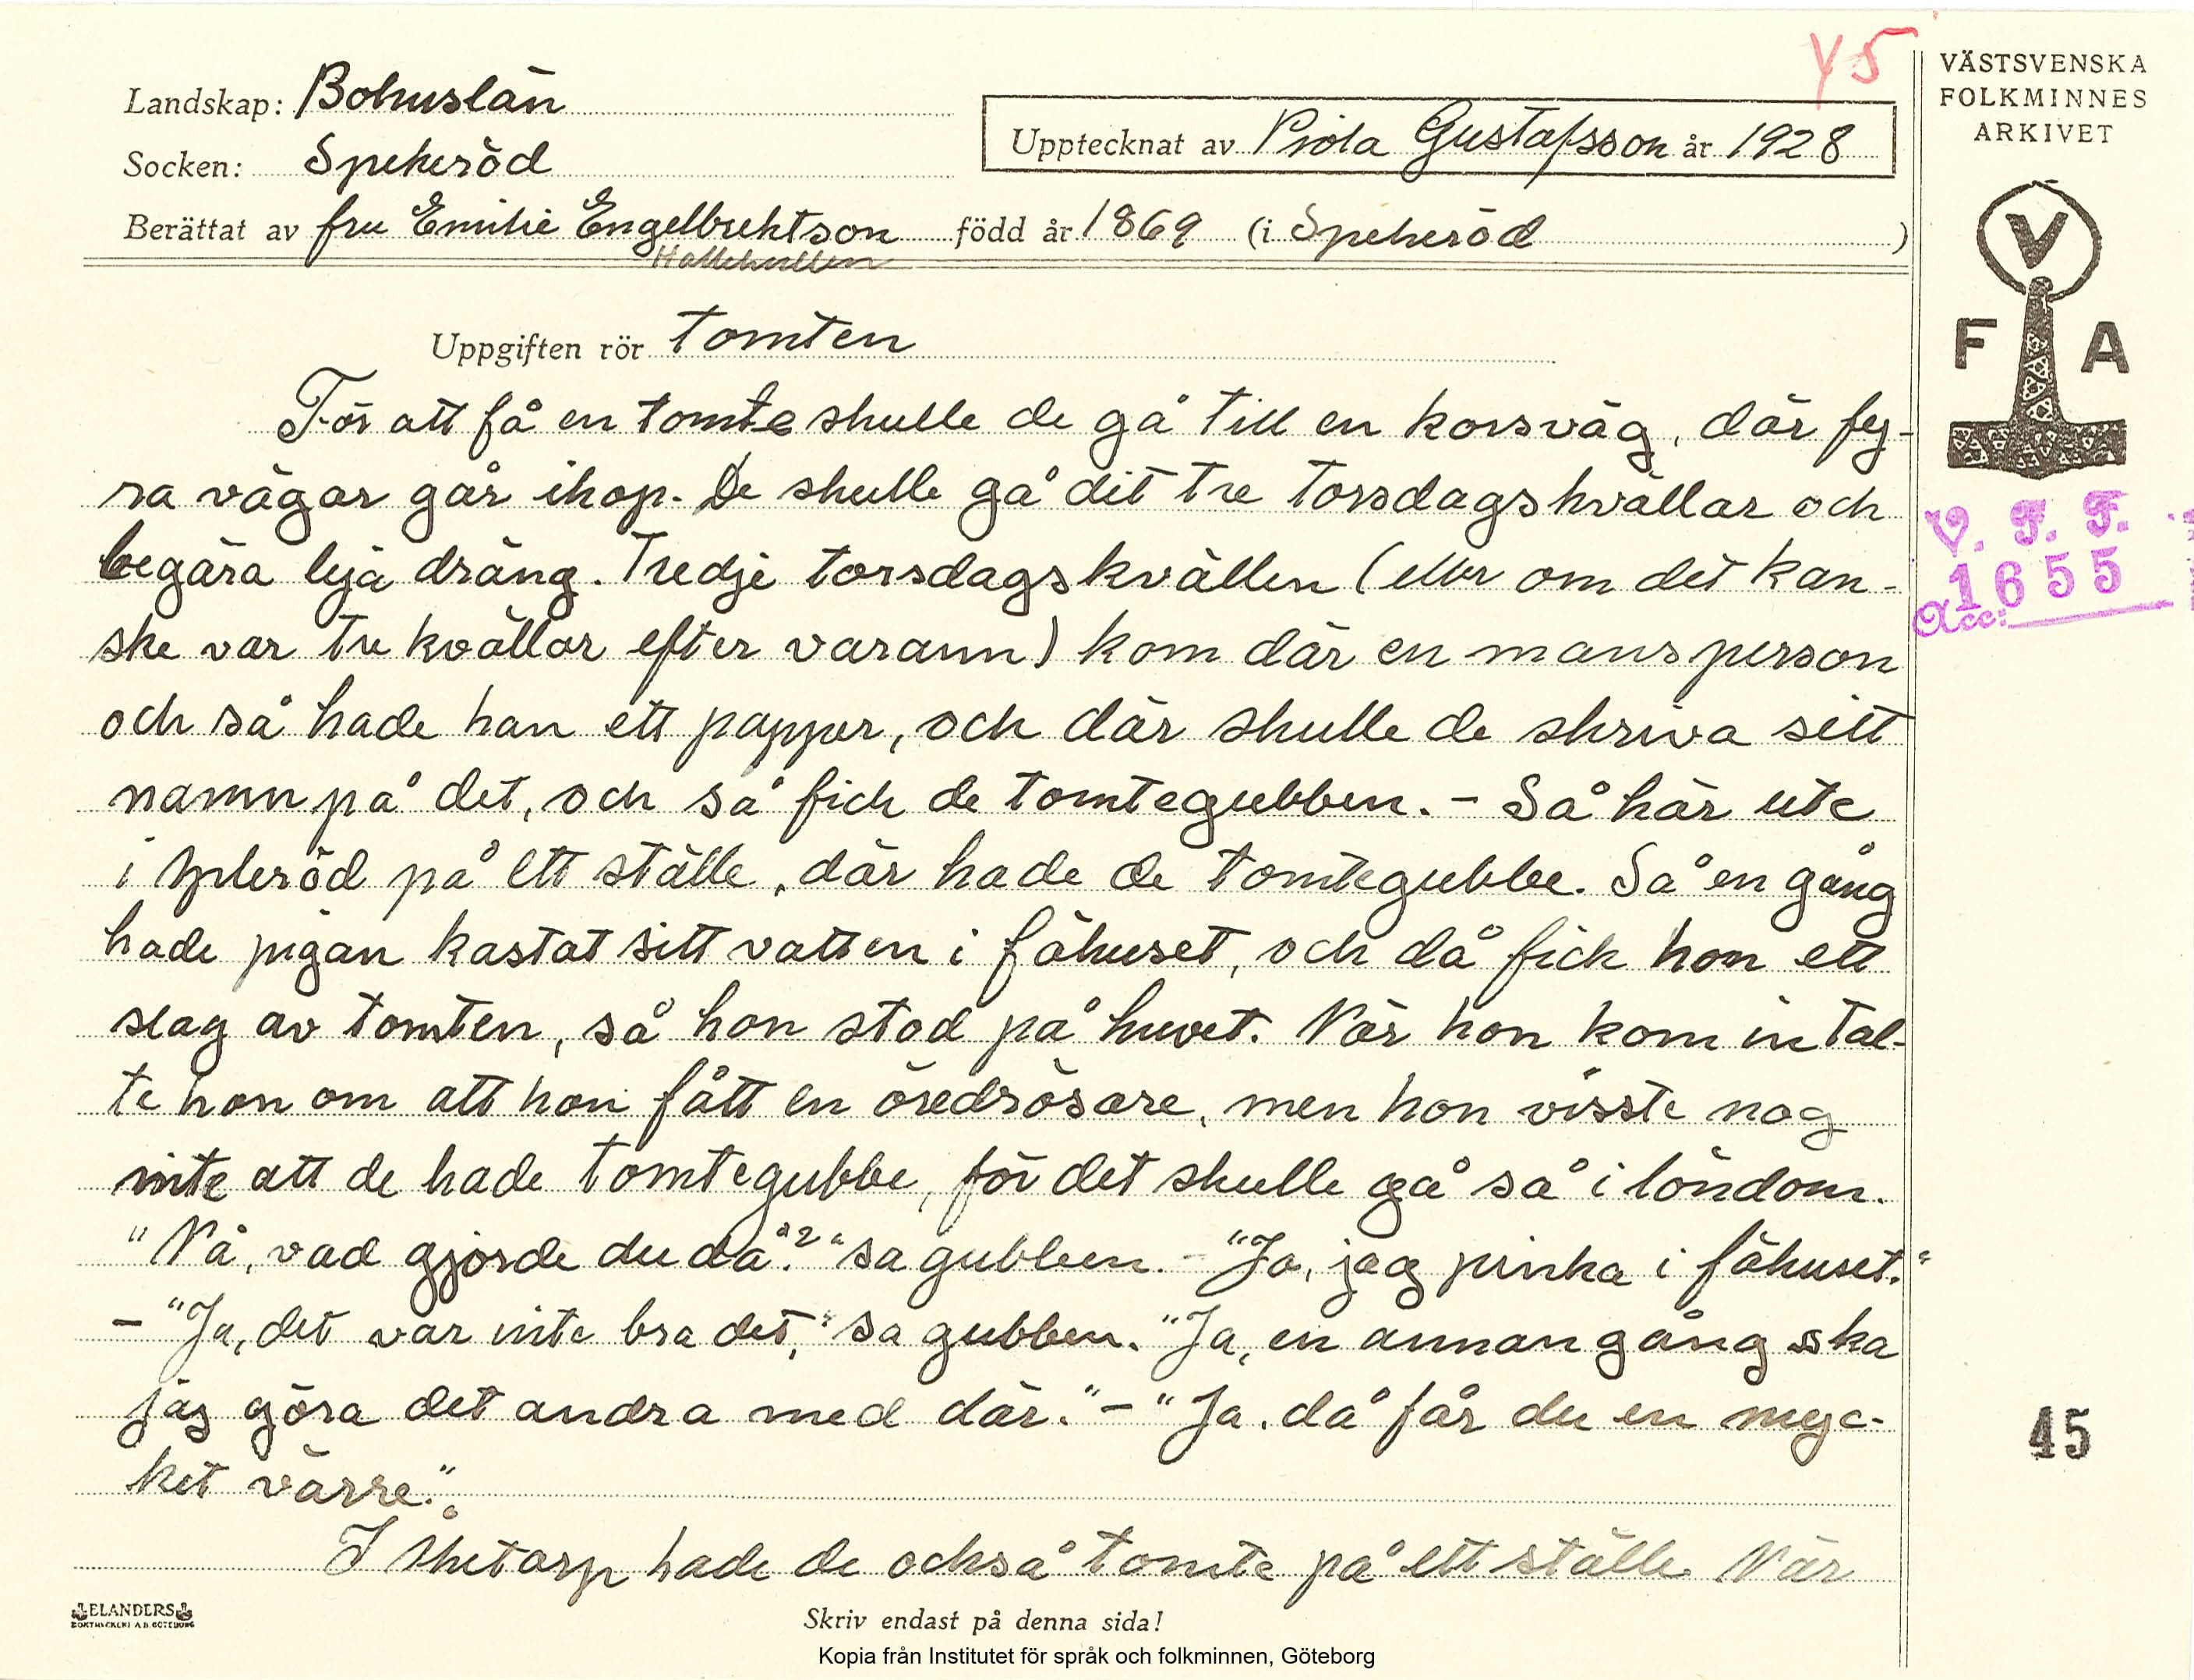 Y5
VÄSTSVENSKA
FOLKMINNES
ARKIVET
Landskap: Bohuslän
Upptecknat av Viola Gustafsson år 1928
Socken: Spekeröd
Berättat av fru Emilie Engelbrektson född år 1869 (i Spekeröd)
V
F A
Uppgiften rör tomten
För att få en tomte skulle de gå till en korsväg, där fy-
ra vägar går ihop. De skulle gå dit tre torsdagskvällar och
begära leja dräng. Tredje torsdagskvällen (eller om det kan-
ske var tre kvällar efter varann) kom där en mansperson
och så hade han ett papper, och där skulle de skriva sitt
namn på det, och så fick de tomtegubben. - Så här ute
i på ett ställe, där hade de tomtegubbe. Så en gång
hade pigan kastat sitt vatten i fähuset, och då fick hon ett
slag av tomten, så hon stod på huvet. När hon kom in tal-
te hon om att hon fått en öredrösare, men hon visste nog
inte att de hade tomtegubbe, för det skulle gå så i löndom.
"Nå, vad gjorde du då?" sa gubben. - "Ja, jag pinka i fähuset."
- "Ja, det var inte bra det," sa gubben. "Ja, en annan gång ska
jag göra det andra med där." - "Ja, då får du en myc-
ket värre."
I hade de också tomte på ett ställe. När
V. F. F.
Acc: 1655
45
ELANDERS
BOKTRYCKERI A.B. GÖTEBORG
Skriv endast på denna sida!
Kopia från Institutet för språk och folkminnen, Göteborg